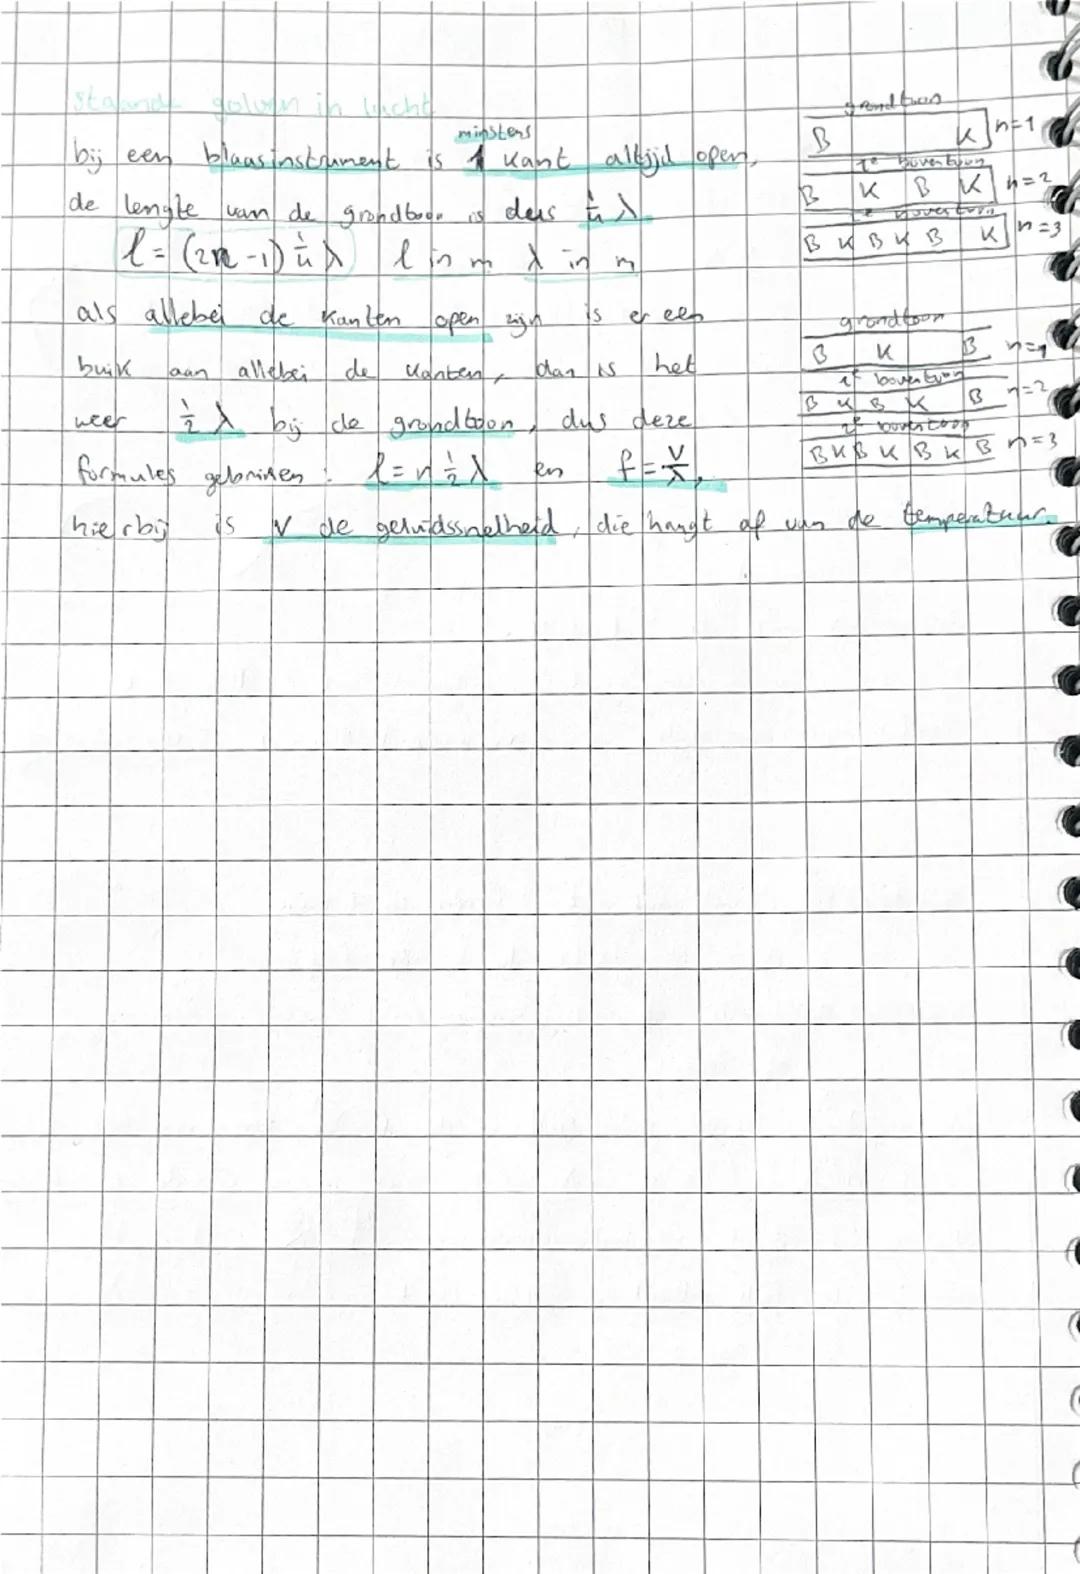 staande golven in lucht
minstens
bij een blaasinstrument is 1 kant altijd open,
de lengte van de grondtoon is dus ¼ λ
l = (2n - 1) ¼ λ l in m λ in m
als allebei de kanten open zijn is er een
buik aan allebei de kanten, dan is het
weer ½ λ bij de grondtoon, dus deze
formules gebruiken : l = n ½ λ en f = v/λ,
hierbij is v de geluidssnelheid, die hangt af van de temperatuur.
grondtoon
B K n=1
1e boventoon
B K B K n=2
2e boventoon
B K B K B K n=3
grondtoon
B K B n=1
1e boventoon
B K B K B n=2
2e boventoon
B K B K B K B n=3